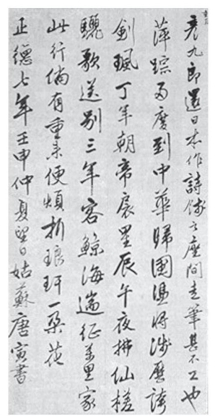 彦九郎還日本作詩餞之座間走筆甚不工也
萍踪兩度到中華歸國憑將涉歷誇
劍珮丁年朝帝扆星辰午夜拂仙槎
驪歌送別三年客鯨海遄征萬里家
此行倘有重來便煩折琅玕一朶花
正德七年壬申仲夏望日姑蘇唐寅書